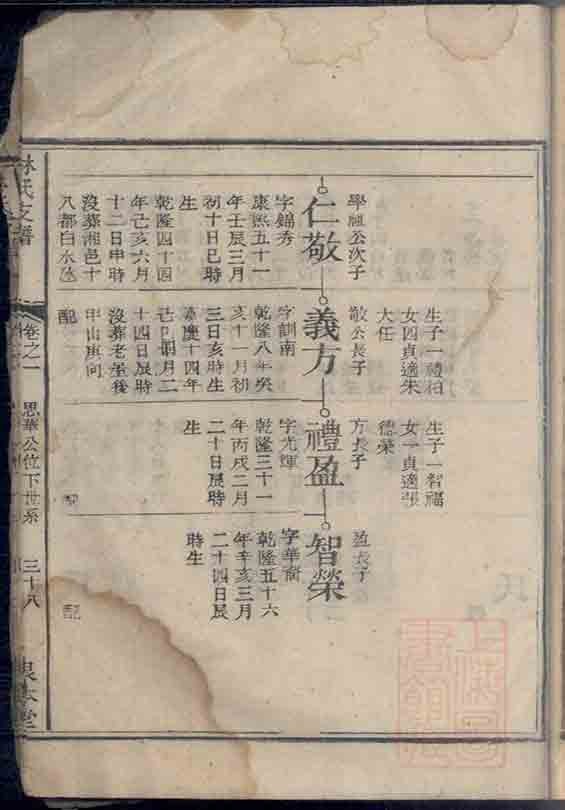 生子一禮柏
女四貞適朱
大任
生子一智福
女一貞適張
德榮
學凰公次子
仁敬
字錦秀
康熙五十一
年壬辰三月
初十日巳時
生
乾隆四十四
年己亥六月
十二日申時
沒葬湘邑十
八都白水
敬公長子
義方
字訓南
乾隆八年癸
亥十一月初
三日亥時生
嘉慶十四年
己巳閏月二
十四日辰時
沒葬老塋後
甲山庚向
配
方長子
禮盈
字光輝
乾隆三十一
年丙戌二月
二十日辰時
生
配
盈長子
智榮
字華
乾隆五十六
年辛亥三月
二十四日辰
時生
配
林氏支譜
卷之一
思華公位下世系
三十八
上海圖書館藏